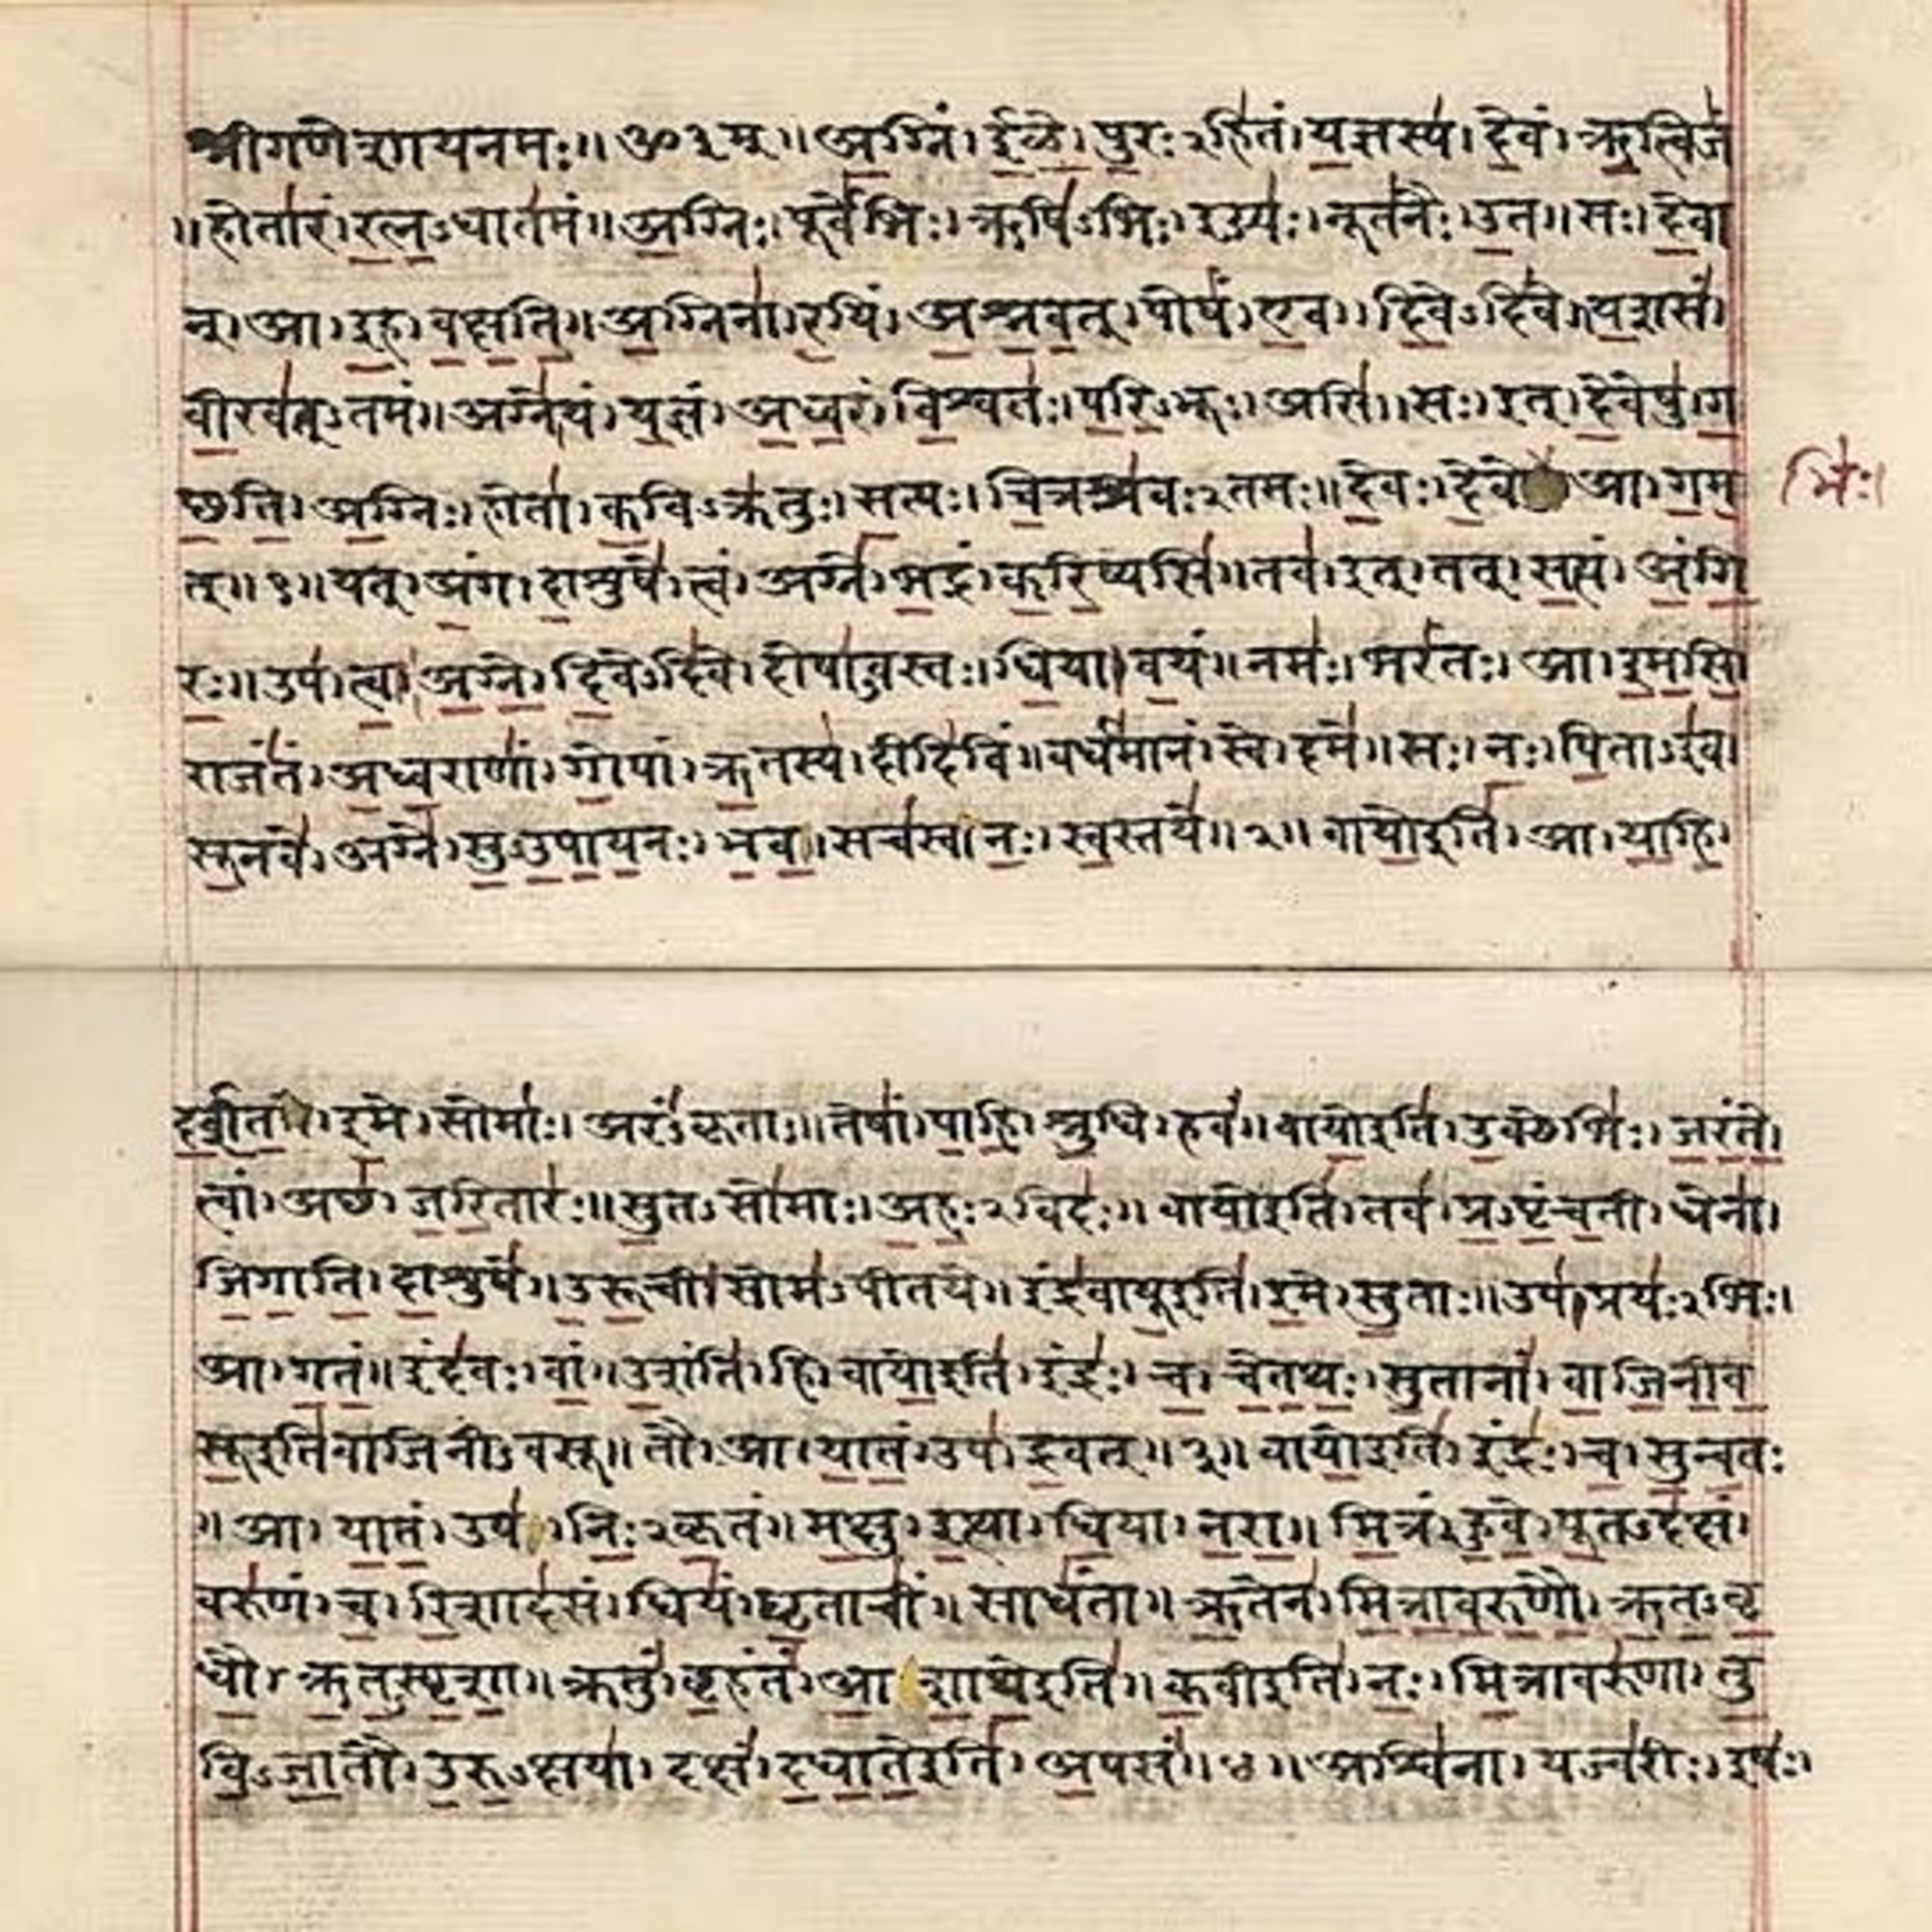 श्रीगणेशायनमः॥ॐ३म्॥अ॒ग्निं।ई॒ळे॒।पु॒रः२हि॑तं।य॒ज्ञस्य॑।दे॒वं।ऋ॒त्विज॑
॥होता॑रं।र॒त्न॒ऽधात॑मं॥अ॒ग्निः।पूर्वे॑भिः।ऋषि॑ऽभिः।ईड्यः॑।नूत॑नैः।उ॒त॥सः।दे॒वा
न्।आ।इ॒ह।व॒क्ष॒ति॒॥अ॒ग्निना॑।र॒यिं।अ॒श्न॒व॒त्।पोषं॑।ए॒व।दि॒वेऽदि॑वे॥य॒शसं॑।
वी॒रव॑त्ऽतमं॥अग्ने॑।यं।य॒ज्ञं।अ॒ध्व॒रं।वि॒श्वतः॑।प॒रि॒ऽभूः।असि॑।सः।इत्।दे॒वेषु॑।ग॒
छ॒ति॒।अ॒ग्निः।होता॑।क॒विऽक्र॑तुः।स॒त्यः।चि॒त्रश्र॑वः२तमः॥दे॒वः।दे॒वे आ।ग॒म॒
भिः।
त्॥१॥यत्।अं॒ग।दा॒शुषे॑।त्वं।अग्ने॑।भ॒द्रं।क॒रि॒ष्यसि॑॥तव॑।इत्।तत्।स॒त्यं।अं॒गि॒
रः॒॥उप॑।त्वा॒।अ॒ग्ने॒।दि॒वेऽदि॑वे।दोषा॑ऽवस्तः।धि॒या।व॒यं॥नमः॑।भरं॑तः।आ।इ॒म॒सि॒।
राजं॑तं।अ॒ध्व॒राणां॑।गो॒पां।ऋ॒तस्य॑।दीदि॑विं॥वर्ध॑मानं।स्वे।दमे॑॥सः।नः॒।पि॒ताऽइ॑व।
सू॒नवे॑।अग्ने॑।सु॒ऽउ॒पा॒य॒नः।भ॒व॒।सच॑स्व।नः॒।स्व॒स्तये॑॥२॥वायो॒इति॑।आ।या॒हि॒।
द॒र्श॒त॒।इ॒मे।सोमाः॑।अरं॑ऽकृताः॥तेषां॑।पा॒हि॒।श्रु॒धि।हवं॑॥वायो॒इति॑।उ॒क्थेभिः॑।ज॒रं॒ते॒।
त्वां।अछ॑।ज॒रि॒तारः॑॥सु॒तऽसो॑माः।अ॒हः॒२विदः॑॥वायो॒इति॑।तव॑।प्र॒ऽपृं॒च॒ती।धेना॑।
जि॒गा॒ति॒।दा॒शुषे॑॥उ॒रू॒ची।सोम॑ऽपीतये॥इंद्र॑वायू॒इति॑।इ॒मे।सु॒ताः॥उप॑।प्रयः॑२भिः।
आ।ग॒तं॒॥इंद॑वः।वां॒॥उ॒शंति॑।हि।वायो॒इति॑।इंद्रः॑।च॒।चे॒त॒थः॒।सु॒तानां॑।वा॒जि॒नी॒व॒
सू॒इति॑वाजिनीऽवसू॥तौ।आ।या॒तं॒।उप॑।द्र॒वत्॥३॥वायो॒इति॑।इंद्रः॑।च॒।सु॒न्व॒तः
॥आ।या॒तं॒।उप॑।निः॒२कृ॒तं॥म॒क्षु।इ॒त्था।धि॒या।न॒रा॒॥मि॒त्रं।हु॒वे॒।पू॒तऽद॑क्षं।
वरु॑णं।च॒।रि॒शाद॑सं।धियं॑।घृ॒ताचीं॑॥साधं॑ता॥ऋ॒तेन॑।मि॒त्रा॒व॒रु॒णौ॒।ऋ॒त॒ऽवृ॒
धौ॒।ऋ॒त॒स्पृ॒शा॒॥क्रतुं॑।बृ॒हंतं॑।आ॒शा॒थे॒इति॑॥क॒वीइति॑।नः॒।मि॒त्रावरु॑णा।तु॒
वि॒ऽजा॒तौ।उ॒रु॒ऽक्षया॑।दक्षं॑।द॒धा॒ते॒इति॑।अ॒पसं॑॥४॥अश्वि॑ना।यज्व॑रीः।इषः॑।